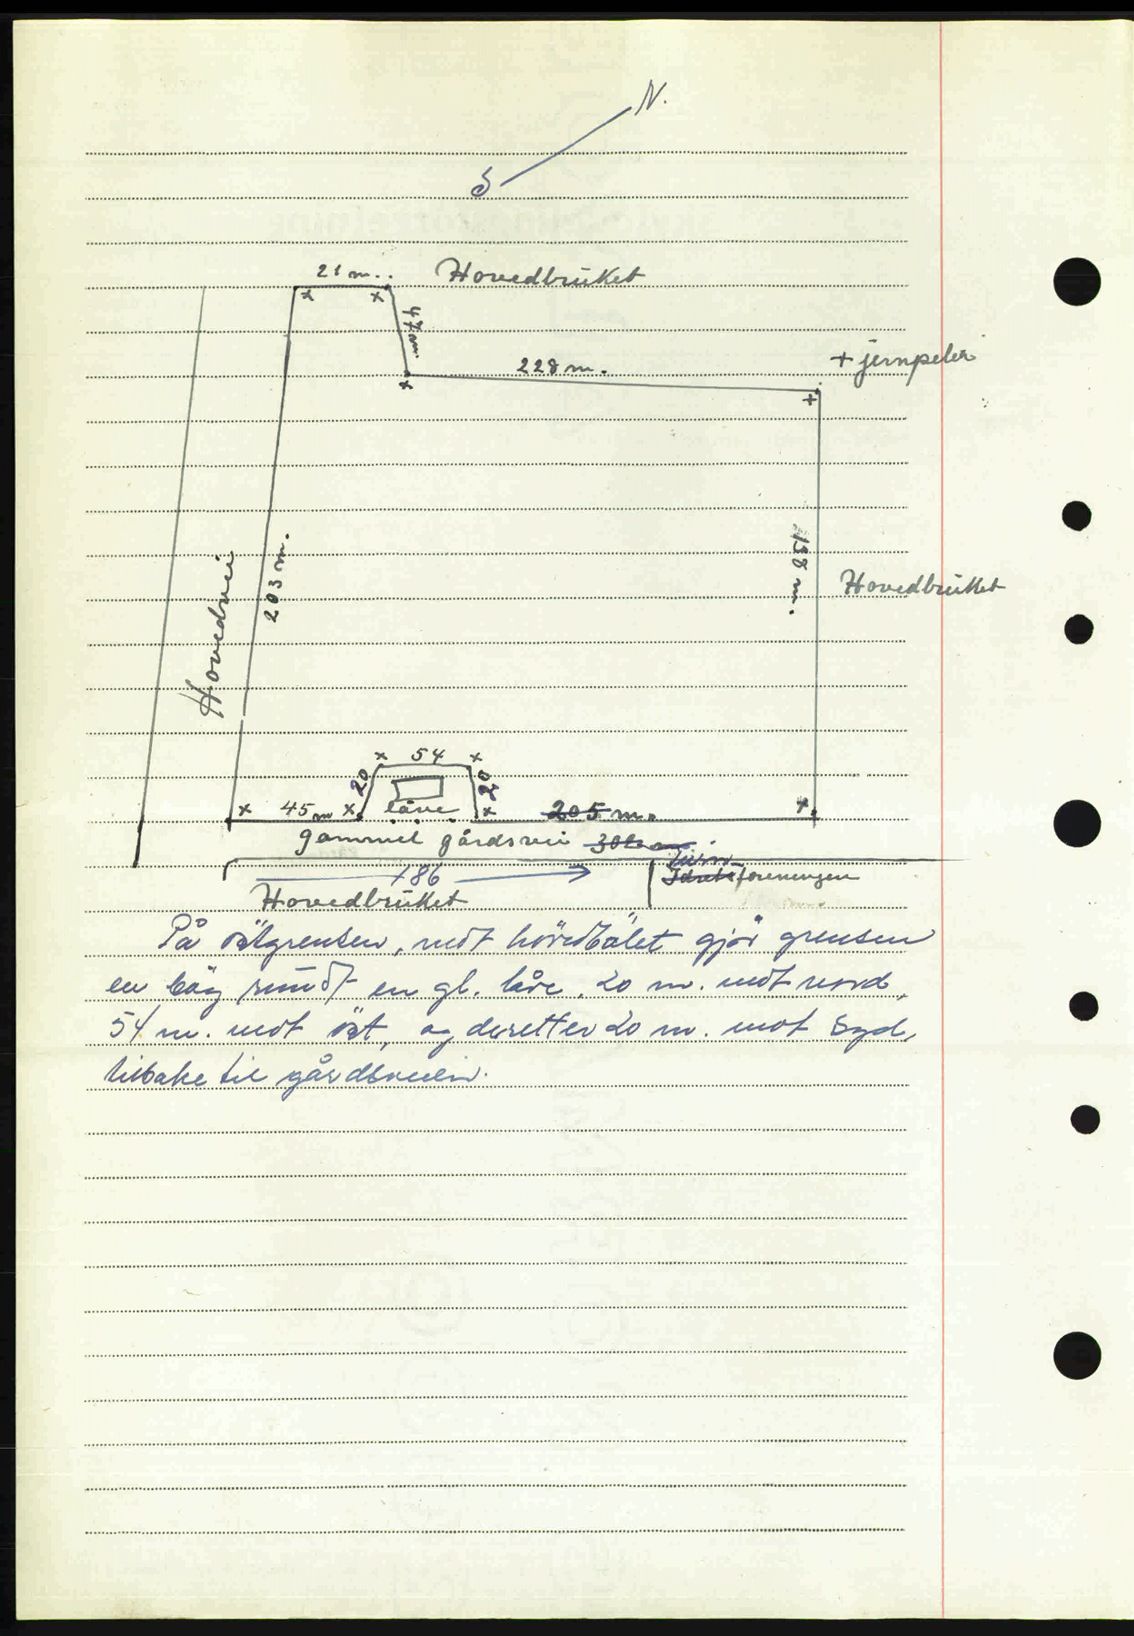 N.
S
21 m.
Hovedbruket
47 m.
228 m.
+ jernpeler
203 m.
Hovedvei
158 m.
Hovedbruket
54
20
20
låve
45 m
205 m.
gammel gårdsvei
186
Turn
Idrettsforeningen
Hovedbruket
På østgrensen, mot hovedbølet gjør grensen
en bøg rundt en gl. låve. 20 m. mot nord,
54 m. mot øst, og deretter 20 m. mot syd,
tilbake til gårdsveien.